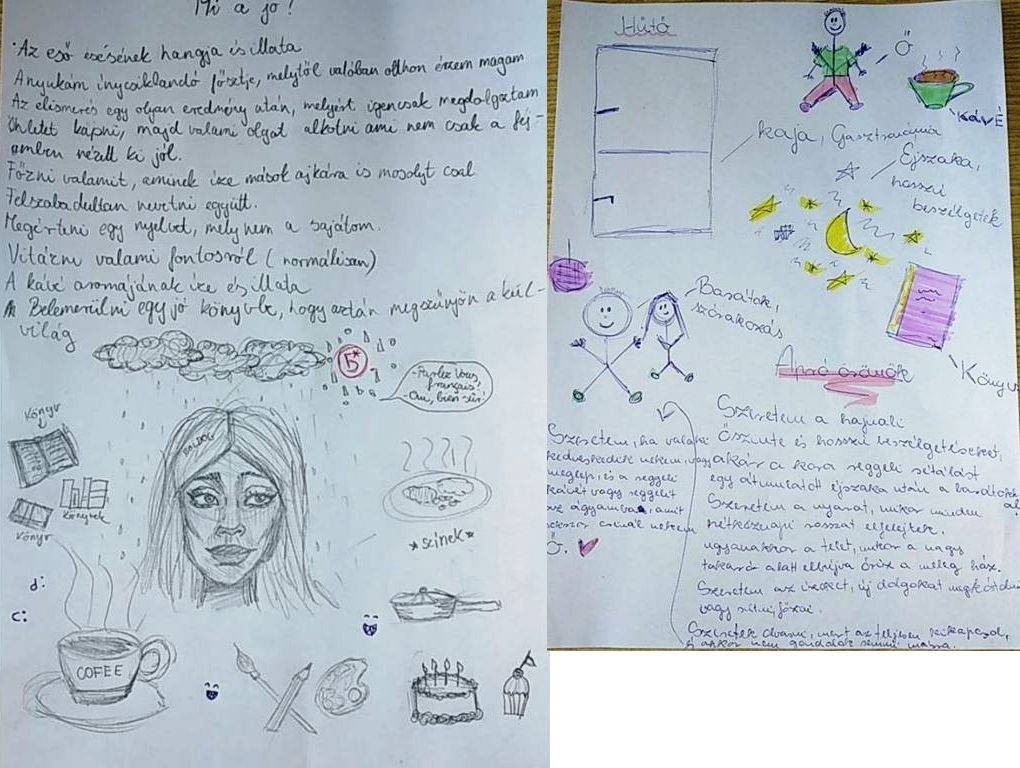 Mi a jó?
Az eső esésének hangja és illata
Anyukám ínycsiklandó főztje, melytől valóban otthon érzem magam
Az elismerés egy olyan eredmény után, melyért igencsak megdolgoztam
Ihletet kapni, majd valami olyat alkotni ami nem csak a fej-
emben nézett ki jól.
Főzni valamit, aminek íze mások ajkára is mosolyt csal
Felszabadultan nevetni együtt.
Megérteni egy nyelvet, mely nem a sajátom.
Vitázni valami fontosról (normálisan)
A kávé aromájának íze és illata
Belemerülni egy jó könyvbe, hogy aztán megszűnjön a kül-
világ
5*
-Parlez Vous
français?
-Oui, bien sûr!
BOLDOG
Könyv
Könyvek
Könyv
*színek*
d:
c:
COFFEE
Hűtő
Ő
KÁVÉ
kaja, Gasztronómia
Éjszaka,
hosszú
beszélgetések
Barátok,
szórakozás
Könyv
Apró örömök
Szeretem a hajnali
őszinte és hosszú beszélgetéseket,
akár a kora reggeli sétálást
egy átmulatott éjszaka után a barátokkal
Szeretem a nyarat, mikor minden
hétköznapi rosszat elfelejtek
ugyanakkor a telet, mikor a nagy
takaró alatt elbújva őriz a meleg ház.
Szeretem az ízeket, új dolgokat megkóstolni
vagy sütni/főzni.
Szeretek olvasni, mert az teljesen kikapcsol,
és akkor nem gondolok semmi másra.
Szeretem, ha valaki
kedveskedik nekem, vagy
meglep, és a reggeli
kávét vagy reggelit
az ágyamba, amit
sokszor csinál nekem
Ő.